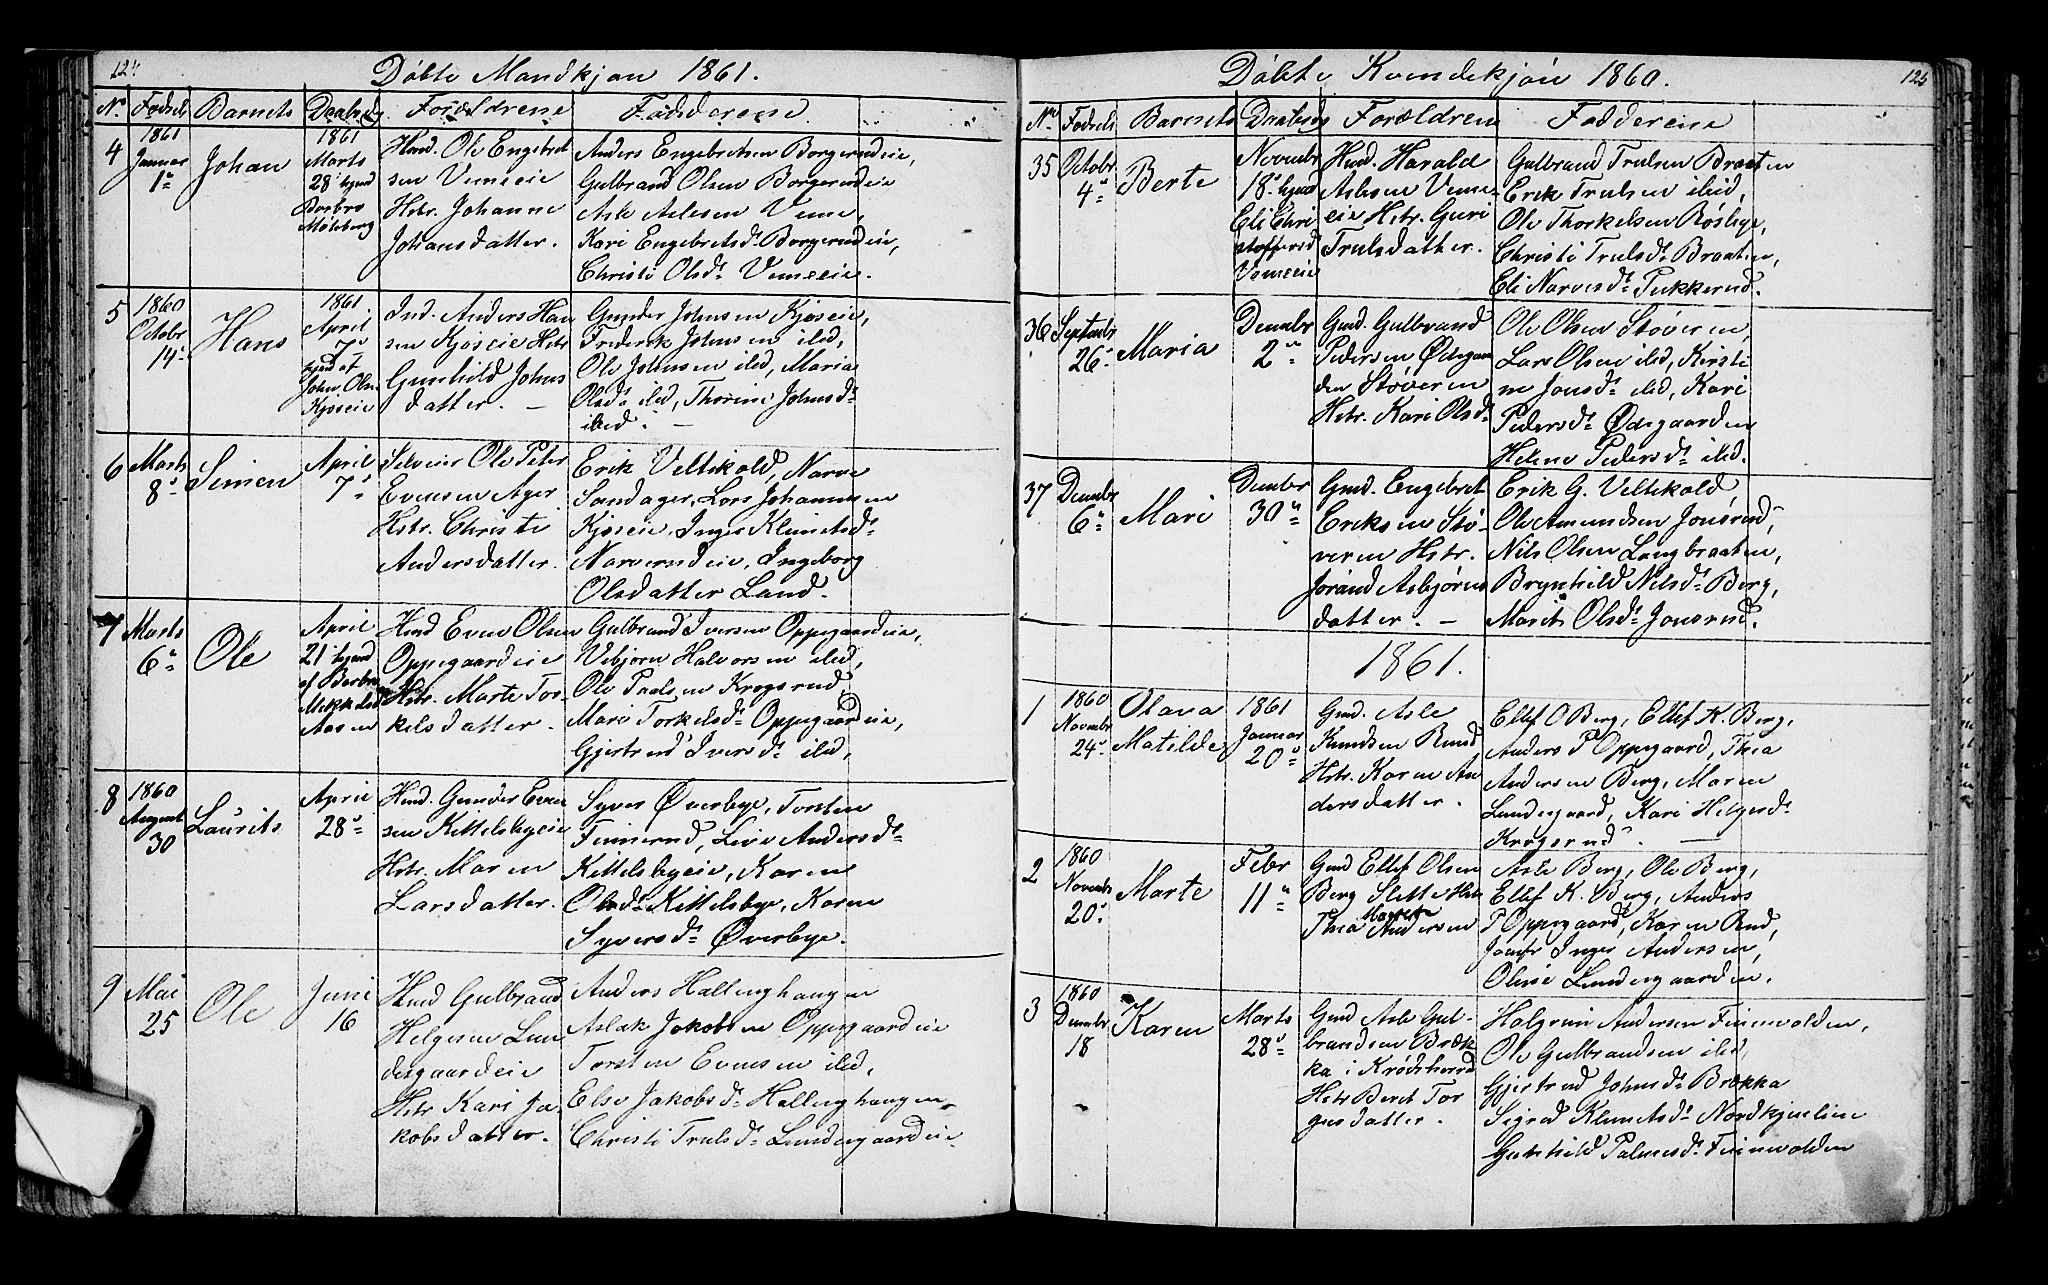 124
Döbte Mandkjøn 1861.
No. Fødsels Barnets Daabsdag Forældrene Fadderene
4 1861 Januar 1ᵃ Johan 1861 Marts 28ᵈ hjmd Barbro
Husd. Ole Engebret
sen Vemeeie
Hstr. Johanne
Johansdatter.
Anders Engebretsen Borgerudeie,
Gulbrand Olsen Borgerudeie
Asle Aslesen Veme,
Kari Engebretsdr Borgerudeie,
Christi Olsdr Vemeeie.
5 1860 Octobr 14d Hans 1861 April 7d hjmd af John Olsn Kjøseie
Ind. Anders Han
sen Kjøseie Hstr
Gunhild Johns
datter. —
Gunder Johnsen Kjøseie,
Frederik Johnsen ibid,
Ole Johnsen ibid, Maria
Olsdr ibid, Thorine Johnsdr
ibid. —
6 Marts 8d Simen April 7d
Selveier Ole Peter
Evensen Ager
Hstr. Christi
Andersdatter.
Erik Veltikold, Narve
Sandager, Lars Johannesen
Kjøseie, Inger Klemetsdr
Narverudeie, Ingeborg
Olsdatter Land.
7 Marts 6d Ole April 21d hjmd af Berthe Mikkelsd Aasen
Husd Even Olsen
Oppegaardeie
Hstr. Marte Tor-
kelsdatter.
Gulbrand Iversen Oppegaardeie,
Vebjørn Halvorsen ibid,
Ole Paalsen Krogsrud,
Mari Torkelsdr Oppegaardeie,
Gjertrud Iversdr ibid,
8 1860 August 30 Laurits April 28d
Husd. Gunder Even
sen Kittelsbyeie
Hstr. Maren
Larsdatter.
Syver Øverbye, Torsten
Finnerud, Live Andersdr
Kittelsbyeie, Karen
Olsdr Kittelsbye, Karen
Syversdr Øverbye.
9 Mai 25 Ole Juni 16
Husd Gulbrand
Helgesen Lun
degaardeie
Hstr Kari Ja
kobsdatter.
Anders Hallinghaugen
Aslak Jakobsen Oppegaardeie
Torsten Evensen ibid,
Else Jakobsdr Hallinghaugen
Christi Trulsdr Lundegaardeie
125
Döbte Kvindekjön 1860.
No Fødsels Barnets Daabsdag Forældrene Fadderene
35 Octobr 4d Berte Novembr 18d hjmd Eli Chri stoffersd Vemeeie
Husd. Harald
Aslesen Veme
eie Hstr. Guri
Trulsdatter.
Gulbrand Trulsen Braaten
Erik Trulsen ibid,
Ole Thorkelsen Røslye,
Christi Trulsdr Braaten,
Eli Narvesdr Pukkerud.
36 Septembr 26d Maria Decembr 2d
Gmd. Gulbrand
Pedersen Ødegaar
den Støveren
Hstr. Kari Olsdr
Ole Olsen Støveren,
Lars Olsen ibid, Kirsti
ne Jonsdr ibid, Kari
Pedersdr Ødegaarden
Helene Pedersdr ibid.
37 Decembr 6d Mari Decembr 30d
Gmd. Engebret
Eriksen Stø-
veren Hstr.
Jorand Asbjørns
datter. —
Erik G. Veltikold,
Ole Amundsen Jonsrud,
Nils Olsen Langbraaten,
Brynhild Nilsdr Berg,
Marit Olsdr Jonsrud.
1861.
1 1860 Novembr 24d Olava Matilde 1861 Januar 20d
Gmd. Asle
Knudsen Rud
Hstr. Karen An
dersdatter.
Ellef O Berg, Ellef K. Berg,
Anders P Oppegaard, Thea
Andersen Berg, Maren
Lundegaard, Kari Helgesdr
Krogsrud. —
2 1860 Novembr 20d Marte Febr 11d
Gmd Ellef Olsen
Berg Slette Hstr
Thea Margrete Andersen
Asle Berg, Ole Berg,
Ellef K. Berg, Anders
P Oppegaard, Karen Rud,
Jomfr Inger Andersen,
Oline Lundegaarden.
3 1860 Decembr 18 Karen Marts 28d
Gmd Asle Gul-
brandsen Bræk
ka i Krødsherred
Hstr Beret Tor
gersdatter.
Halgrim Andersen Finnvolden,
Ole Gulbrandsen ibid,
Gjertrud Johnsdr Brækka
Sigrid Klemetsdr Nordkjenlien
Gunhild Palmesdr Finnvolden